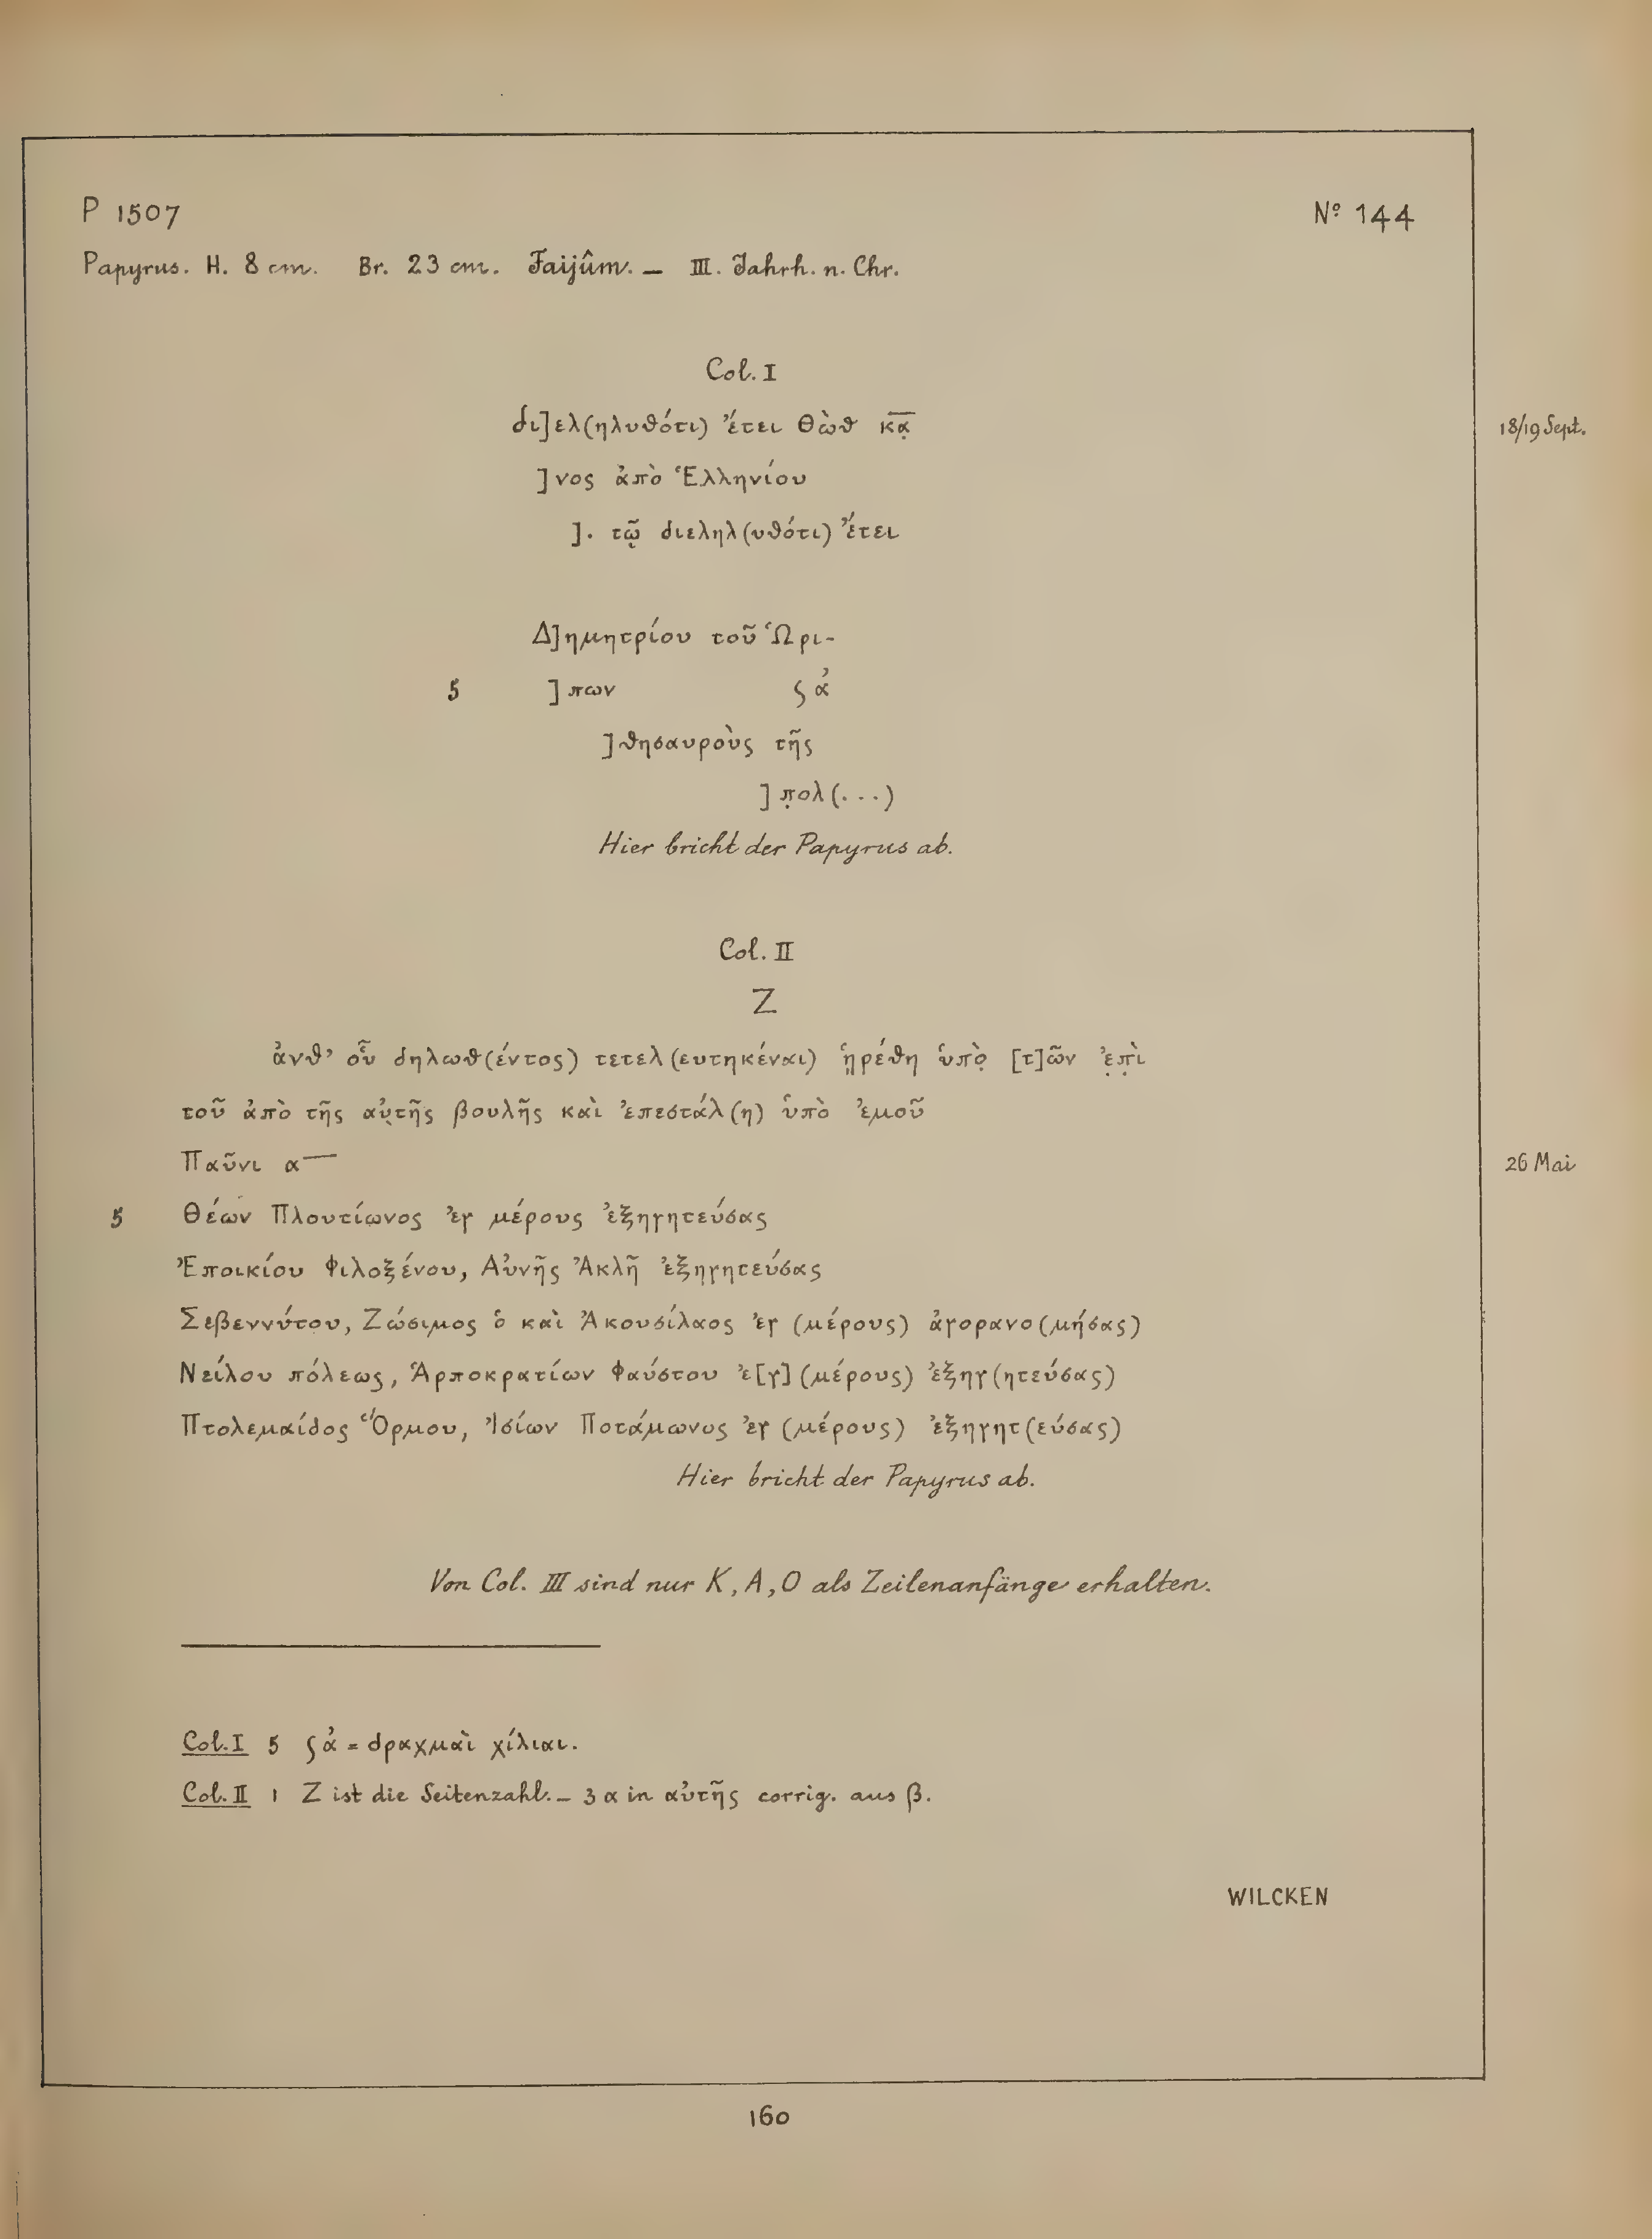 P 1507 Nº 144
Papyrus. H. 8 cm. Br. 23 cm. Faijûm. – III. Jahrh. n. Chr.
Col. I
δι]ελ(ηλυθότι) ἔτει Θὼθ κ̅α̣̅ 18/19 Sept.
]νος ἀπὸ Ἑλληνίου
]. τῷ διεληλ(υθότι) ἔτει
Δ]ημητρίου τοῦ Ὡρι-
5 ]πων ϛ ἀ
]θησαυροὺς τῆς
]π̣ολ(...)
Hier bricht der Papyrus ab.
Col. II
Z
ἀνθ’ οὗ δηλωθ(έντος) τετελ(ευτηκέναι) ᾑρέθη ὑπὸ̣ [τ]ῶν ἐ̣π̣ὶ
τοῦ ἀπὸ τῆς αὐ̣τῆς βουλῆς καὶ ἐπεστάλ(η) ὑπὸ ἐμοῦ
Παῦνι α— 26 Mai
5 Θέων Πλουτίωνος ἐγ μέρους ἐξηγητεύσας
Ἐποικίου Φιλοξένου, Αὐνῆς Ἀκλῆ ἐξηγητεύσας
Σεβεννύτου, Ζώσιμος ὁ καὶ Ἀκουσίλαος ἐγ (μέρους) ἀγορανο(μήσας)
Νείλου πόλεως, Ἁρποκρατίων Φαύστου ἐ[γ] (μέρους) ἐξηγ(ητεύσας)
Πτολεμαίδος Ὅρμου, Ἰσίων Ποτάμωνος ἐγ (μέρους) ἐξηγητ(εύσας)
Hier bricht der Papyrus ab.
Von Col. III sind nur K, A, O als Zeilenanfänge erhalten.
Col. I 5 ϛ ἀ = δραχμαὶ χίλιαι.
Col. II 1 Z ist die Seitenzahl. – 3 α in αὐτῆς corrig. aus β.
WILCKEN
160